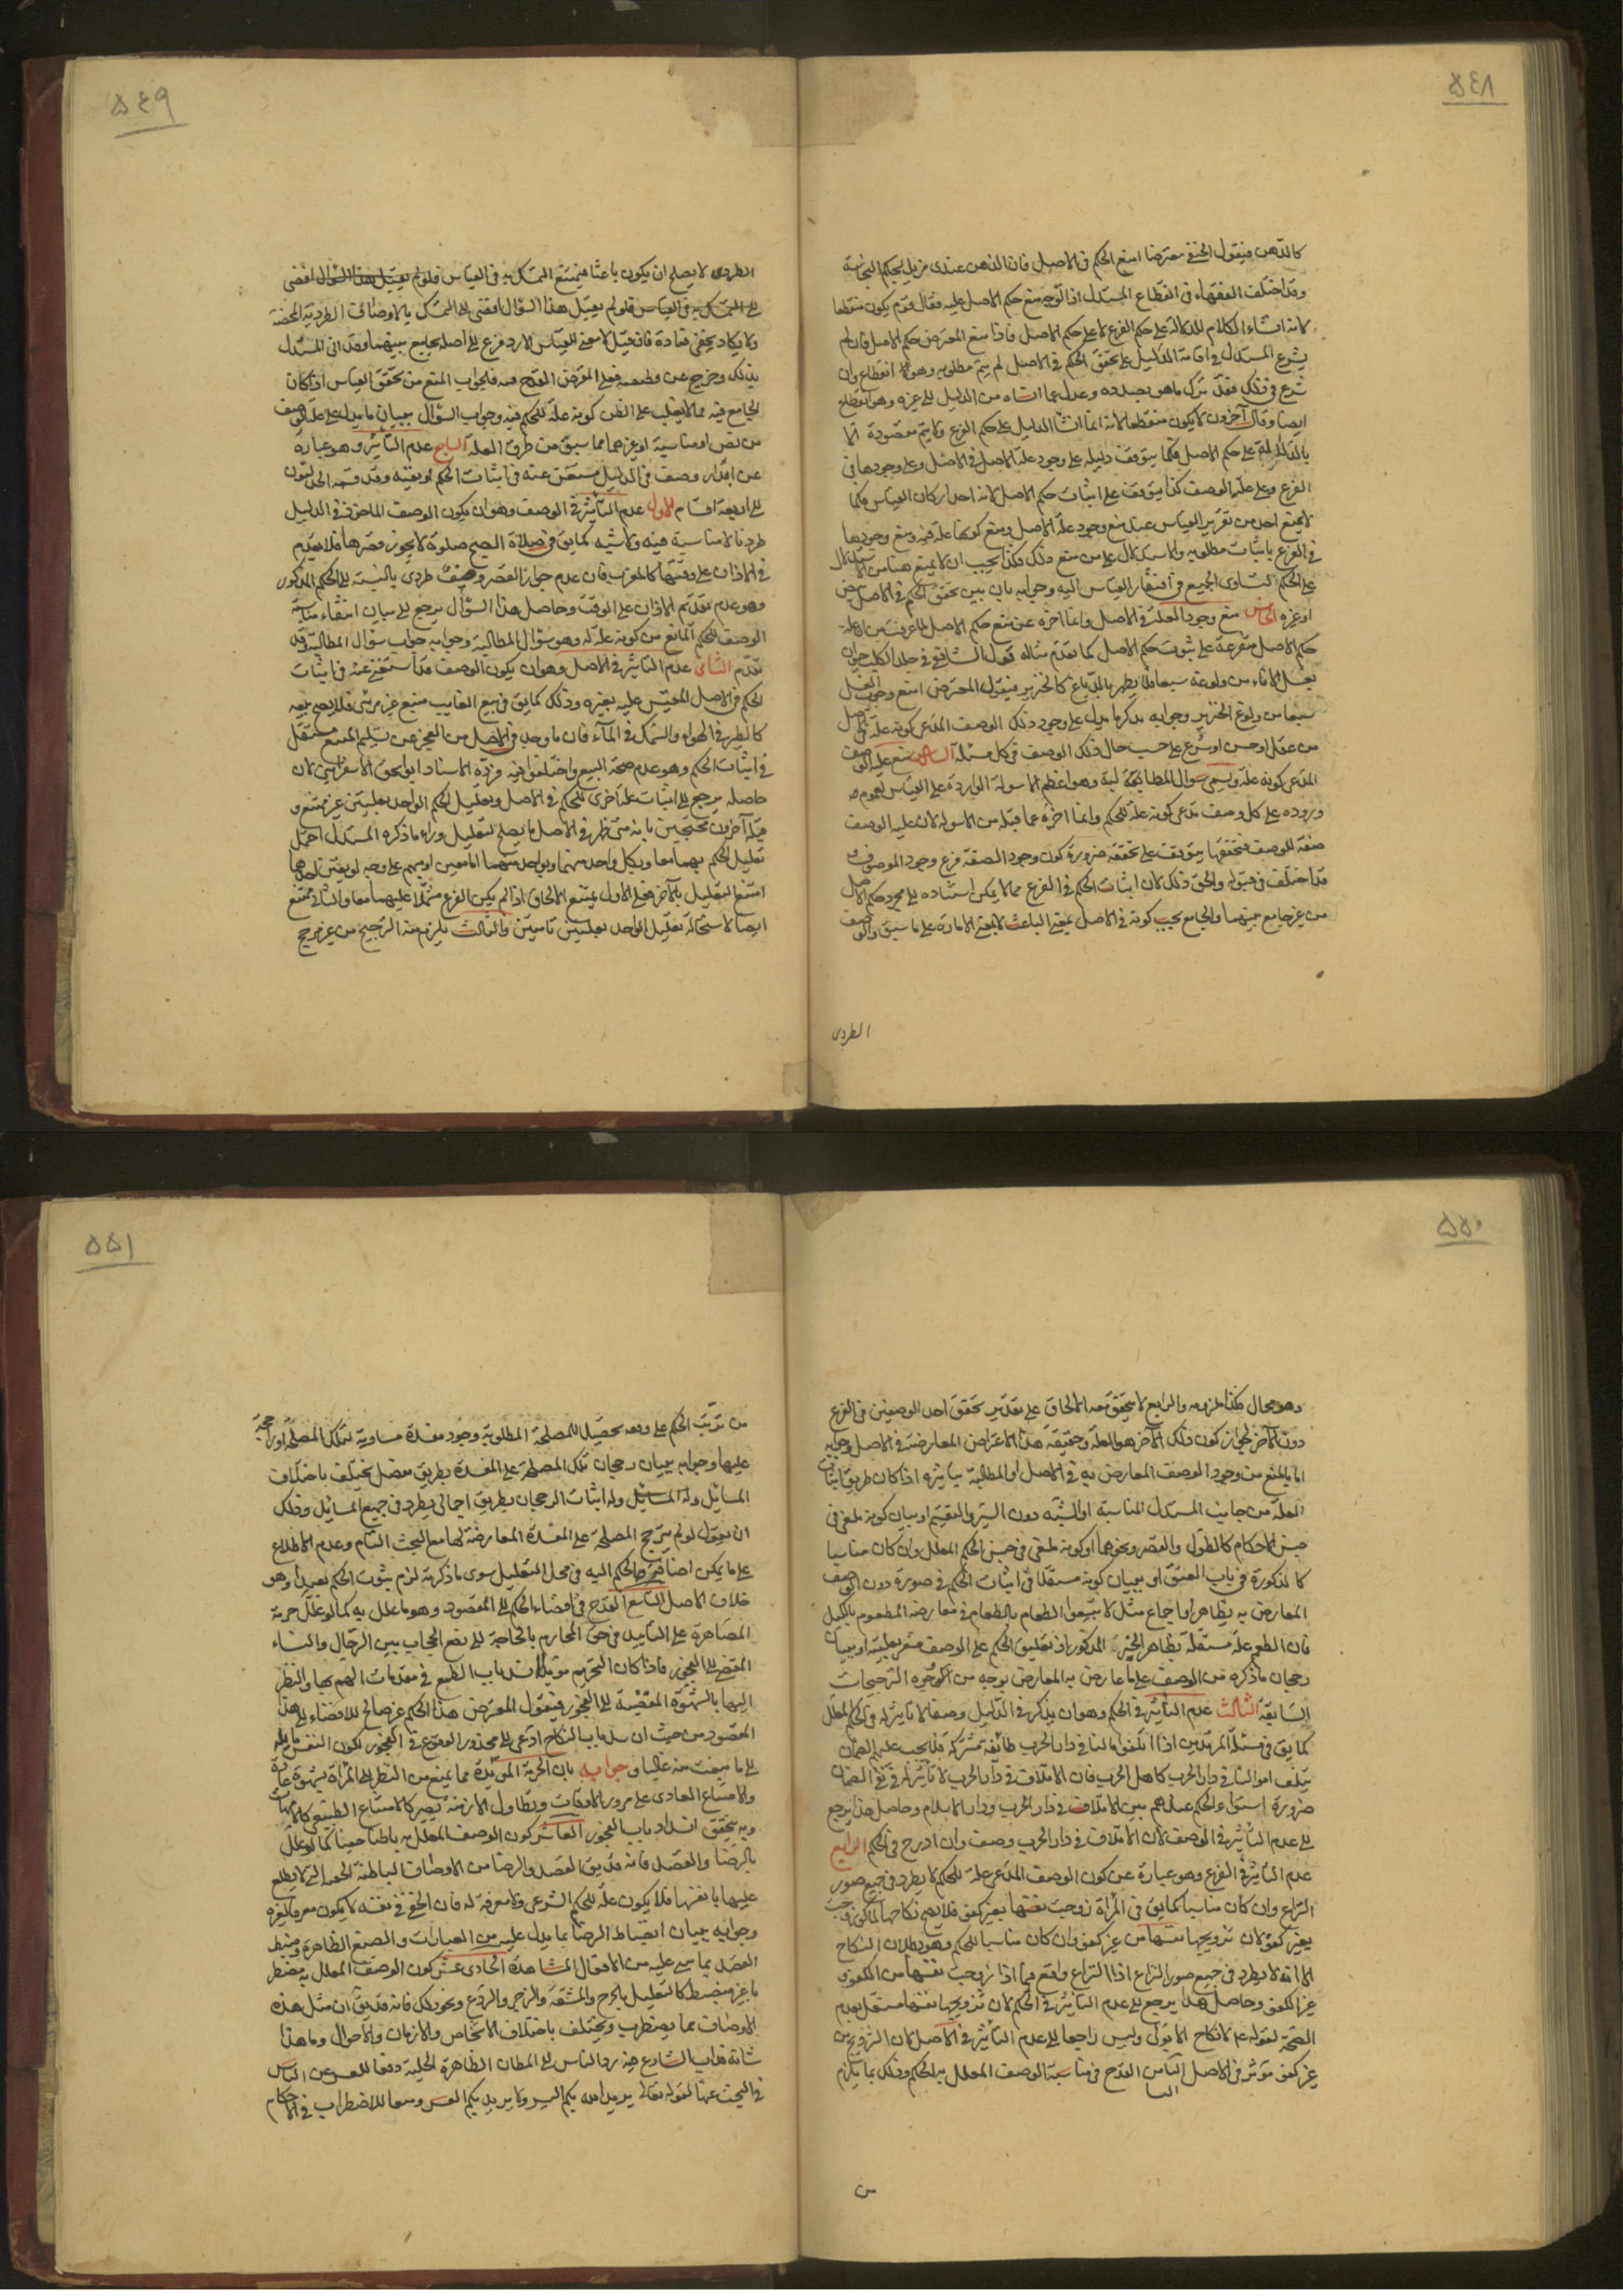 ٥٤٨
كالدهن فيقول الحنفى معترضا امنع الحكم فى الاصل فان الدهن عندى مزيل لحكم النجاسة
وقد اختلف الفقهاء فى انقطاع المستدل اذا توجه منع حكم الاصل عليه فقال قوم يكون منقطعا
لانه انشاء الكلام للدلالة على حكم الفرع لا على حكم الاصل فاذا منع المعترض حكم الاصل فان لم
يشرع المستدل فى اقامة الدليل على تحقق الحكم فى الاصل لم يتم مطلوبه وهو انقطاع وان
شرع فى ذلك فقد ترك ما هو بصدده وعدل عما انشاه من الدليل الى غيره وهو انقطاع
ايضا وقال آخرون لا يكون منقطعا لانه انما انشا الدليل على حكم الفرع ولا يتم مقصوده الا
بالدلالة على حكم الاصل فكما يتوقف دليله على وجود علة الاصل فى الاصل وعلى وجودها فى
الفرع وعلى علية الوصف كذا يتوقف على اثبات حكم الاصل لانه احد اركان القياس فكما
لا يمنع احد من تقرير القياس عند منع وجود علة الاصل ومنع كونها علة فيه ومنع وجودها
فى الفرع باثبات مطلوبه والاستدلال على من منع ذلك فكذا يجب ان لا يمنع هنا من الاستدلال
على الحكم لتساوى الجميع فى افتقار القياس اليه وجوابه بان يبين تحقق الحكم فى الاصل بنص
او غيره الخامس منع وجود العلة فى الاصل وانما اخره عن منع حكم الاصل لما عرفت من ان علة
حكم الاصل متفرعة على ثبوت حكم الاصل كما تقدم مثاله قول الشافعى فى جلد الكلب حيوان
يغسل الاناء من ولوغه سبعا فلا يطهر بالدباغ كالخنزير فيقول المعترض امنع وجوب الغسل
سبعا من ولوغ الخنزير وجوابه بذكر ما يدل على وجود ذلك الوصف المدعى كونه علة فى الاصل
من عقل او حس او شرع على حسب حال ذلك الوصف فى كل مسئلة السادس منع علية الوصف
المدعى كونه علة ويسمى سوال المطالبة وهو اعظم الاسولة الواردة على القياس لعموم
وروده على كل وصف يدعى كونه علة للحكم وانما اخره عما قبله من الاسولة لان علية الوصف
صفة للوصف فتحققها يتوقف على تحققه ضرورة كون وجود الصفة فرع وجود الموصوف و
قد اختلف فى قبوله والحق ذلك لان اثبات الحكم فى الفرع مما لا يمكن استناده الى مجرد حكم الاصل
من غير جامع بينهما والجامع يجب كونه فى الاصل بمعنى الباعث لا بمعنى الامارة على ما سبق والوصف
الطردى
٥٤٩
الطردى لا يصلح ان يكون باعثا فيمتنع التمسك به فى القياس فلو لم يقبل هذا السؤال افضى
الى التمسك به فى القياس فلو لم يقبل هذا السؤال افضى الى التمسك بالاوصاف الطردية المحضة
ولا يكاد يخفى فساده فان قيل لا معنى للقياس الا رد فرع الى اصله بجامع بينهما وقد اتى المستدل
بذلك وخرج عن وظيفته فعلى المعترض القدح فيه فالجواب المنع من تحقق القياس اذا كان
الجامع فيه مما لا يغلب على الظن كونه علة للحكم فيه وجواب السؤال ببيان ما يدل على علية الوصف
من نص او مناسبة او غيرهما مما سبق من طرق العلة السابع عدم التأثير وهو عبارة
عن ابداء وصف فى الدليل مستغن عنه فى اثبات الحكم او نفيه وقد قسمه الجدليون
الى اربعة اقسام الاول عدم التأثير فى الوصف وهو ان يكون الوصف الماخوذ فى الدليل
طرديا لا مناسبة فيه ولا شبه كما يق فى صلاة الصبح صلوة لا يجوز قصرها فلا يقدم
فى الاذان على وقتها كالمغرب فان عدم جواز القصر وصف طردى بالنسبة الى الحكم المذكور
وهو عدم تقديم الاذان على الوقت وحاصل هذا السؤال يرجع الى بيان انتفاء مناسبة
الوصف للحكم المانع من كونه علة له وهو سؤال المطالبة وجوابه جواب سؤال المطالبة وقد
تقدم الثانى عدم التأثير فى الاصل وهو ان يكون الوصف قد استغنى عنه فى اثبات
الحكم فى الاصل المقيس عليه بغيره وذلك كما يق فى بيع الغايب مبيع غير مرئى فلا يصح بيعه
كالطير فى الهواء والسمك فى الماء فان ما وجد فى الاصل من العجز عن تسليم المبيع مستقل
فى اثبات الحكم وهو عدم صحة البيع واختلفوا فيه فرده الاستاد ابو اسحق الاسفراينى لان
حاصله يرجع الى اثبات علة اخرى للحكم فى الاصل وتعليل الحكم الواحد بعلتين غير ممتنع و
قبله آخرون محتجين بانه متى ظهر فى الاصل ما يصلح للتعليل وراء ما ذكره المستدل احتمل
تعليل الحكم بهما معا وبكل واحد منهما وبواحد منهما اما معين او مبهم على وجه لو يعين لهما
امتنع التعليل بالآخر فعلى الاول يمتنع الالحاق اذا لم يكن الفرع مشتملا عليهما معا والثانى ممتنع
ايضا لاستحالة تعليل الواحد بعلتين تامتين والثالث يلزم منه الترجيح من غير مرجح
٥٥٠
وهو محال فكذا ملزومه والرابع لا يتحقق معه الالحاق على تقدير تحقق احد الوصفين فى الفرع
دون الآخر لجواز كون ذلك الآخر هو العلة وحقيقة هذا الاعتراض المعارضة فى الاصل وجوابه
اما بالمنع من وجود الوصف المعارض به فى الاصل او المطالبة بتاثيره اذا كان طريق اثبات
العلة من جانب المستدل المناسبة او الشبه دون السبر والتقسيم او بيان كونه ملغى فى
جنس الاحكام كالطول والقصر ونحوهما او كونه ملغى فى جنس الحكم المعلل وان كان مناسبا
كالذكورة فى باب العتق او ببيان كونه مستقلا فى اثبات الحكم فى صورة دون الوصف
المعارض به بظاهر او اجماع مثل لا تبيعوا الطعام بالطعام فى معارضة المطعوم بالكيل
فان الطعم علة مستقلة بظاهر الخبر المذكور اذ تعليق الحكم على الوصف مشعر بعليته او ببيان
رجحان ما ذكره من الوصف على ما عارض به المعارض بوجه من الوجوه الترجيحات
السابقة الثالث عدم التأثير فى الحكم وهو ان يذكر فى الدليل وصفا لا تاثير له فى الحكم المعلل
كما يق فى مسئلة المرتدين اذا اتلفوا مالنا فى دار الحرب طائفة مشركة فلا يجب عليهم الضمان
بتلف اموالنا فى دار الحرب كاهل الحرب فان الاتلاف فى دار الحرب لا تأثير له فى نفى الضمان
ضرورة استواء الحكم عندهم بين الاتلاف فى دار الحرب ودار الاسلام وحاصل هذا يرجع
الى عدم التأثير فى الوصف لان الاتلاف فى دار الحرب وصف وان ادرج فى الحكم الرابع
عدم التاثير فى الفرع وهو عبارة عن كون الوصف المدعى علة للحكم لا يطرد فى جميع صور
النزاع وان كان مناسبا كما يق فى المرأة زوجت نفسها بغير كفو فلا يصح نكاحها كما لو زوجت
بغير كفو لان تزويجها نفسها من غير كفو وان كان مناسبا للحكم وهو بطلان النكاح
الا انه لا يطرد فى جميع صور النزاع اذا النزاع واقع فيما اذا زوجت نفسها من الكفو و
غير الكفو وحاصل هذا يرجع الى عدم التأثير فى الحكم لان تزويجها نفسها مستقل بعدم
الصحة لقوله ع لا نكاح الا بولى وليس راجعا الى عدم التأثير فى الاصل لان التزويج من
غير كفو مؤثر فى الاصل الثامن القدح فى مناسبة الوصف المعلل به للحكم وذلك بما يلزم
من
٥٥١
من ترتب الحكم على وفقه تحصيلا للمصلحة المطلوبة وجود مفسدة مساوية لتلك المصلحة او راجحة
عليها وجوابه ببيان رجحان تلك المصلحة على المفسدة بطريق مفصل يختلف باختلاف
المسائل وله اثبات الرجحان بطريق اجمالى يطرد فى جميع المسائل وذلك
ان يقول لو لم يترجح المصلحة على المفسدة المعارضة لها مع البحث التام وعدم الاطلاع
على ما يمكن اضافة الحكم اليه فى محل التعليل سوى ما ذكرته لزم ثبوت الحكم تعبدا وهو
خلاف الاصل التاسع القدح فى افضاء الحكم الى المقصود وهو ما علل به كما لو علل حرمة
المصاهرة على التابيد فى حق المحارم بالحاجة الى رفع الحجاب بين الرجال والنساء
المفضى الى الفجور فاذا كان التحريم مؤبدا انسد باب الطمع فى مقدمات الهم بها والنظر
اليها بالشهوة المفضية الى الفجور فيقول المعترض هذا الحكم غير صالح للافضاء الى هذا
المقصود من حيث ان سد باب النكاح ادعى الى محذور الوقوع فى الفجور لكون النفس مايلة
الى ما منعت منه غالبا و جوابه بان الحرمة المؤبدة مما يمنع من النظر الى المرأة بشهوة عادة
والامتناع العادى على مرور الاوقات وتطاول الازمنة يصير كالامتناع الطبيعى كالامهات
وبه يتحقق انسداد باب الفجور العاشر كون الوصف المعلل به باطنا خفيا كما لو علل
بالرضا والقصد فانه قد يق القصد والرضا من الاوصاف الباطنة الخفية التى لا يطلع
عليها بانفسها فلا يكون علة للحكم الشرعى ولا معرفة له فان الخفى فى نفسه لا يكون معرفا لغيره
وجوابه ببيان انضباط الرضا بما يدل عليه من العبارات والصيغ الظاهرة وضبط
القصد بما يدل عليه من الافعال المشاهدة الحادى عشر كون الوصف المعلل به مضطربا
غير منضبط كالتعليل بالحرج والمشقة والزجر والردع ونحو ذلك فانه قد يق ان مثل هذه
الاوصاف مما يضطرب ويختلف باختلاف الاشخاص والازمان والاحوال وما هذا
شانه فداب الشارع فيه رد الناس الى المظان الظاهرة الجلية دفعا للعسر عن الناس
فى البحث عنها لقوله تعالى يريد الله بكم اليسر ولا يريد بكم العسر ومنعا للاضطراب فى الاحكام